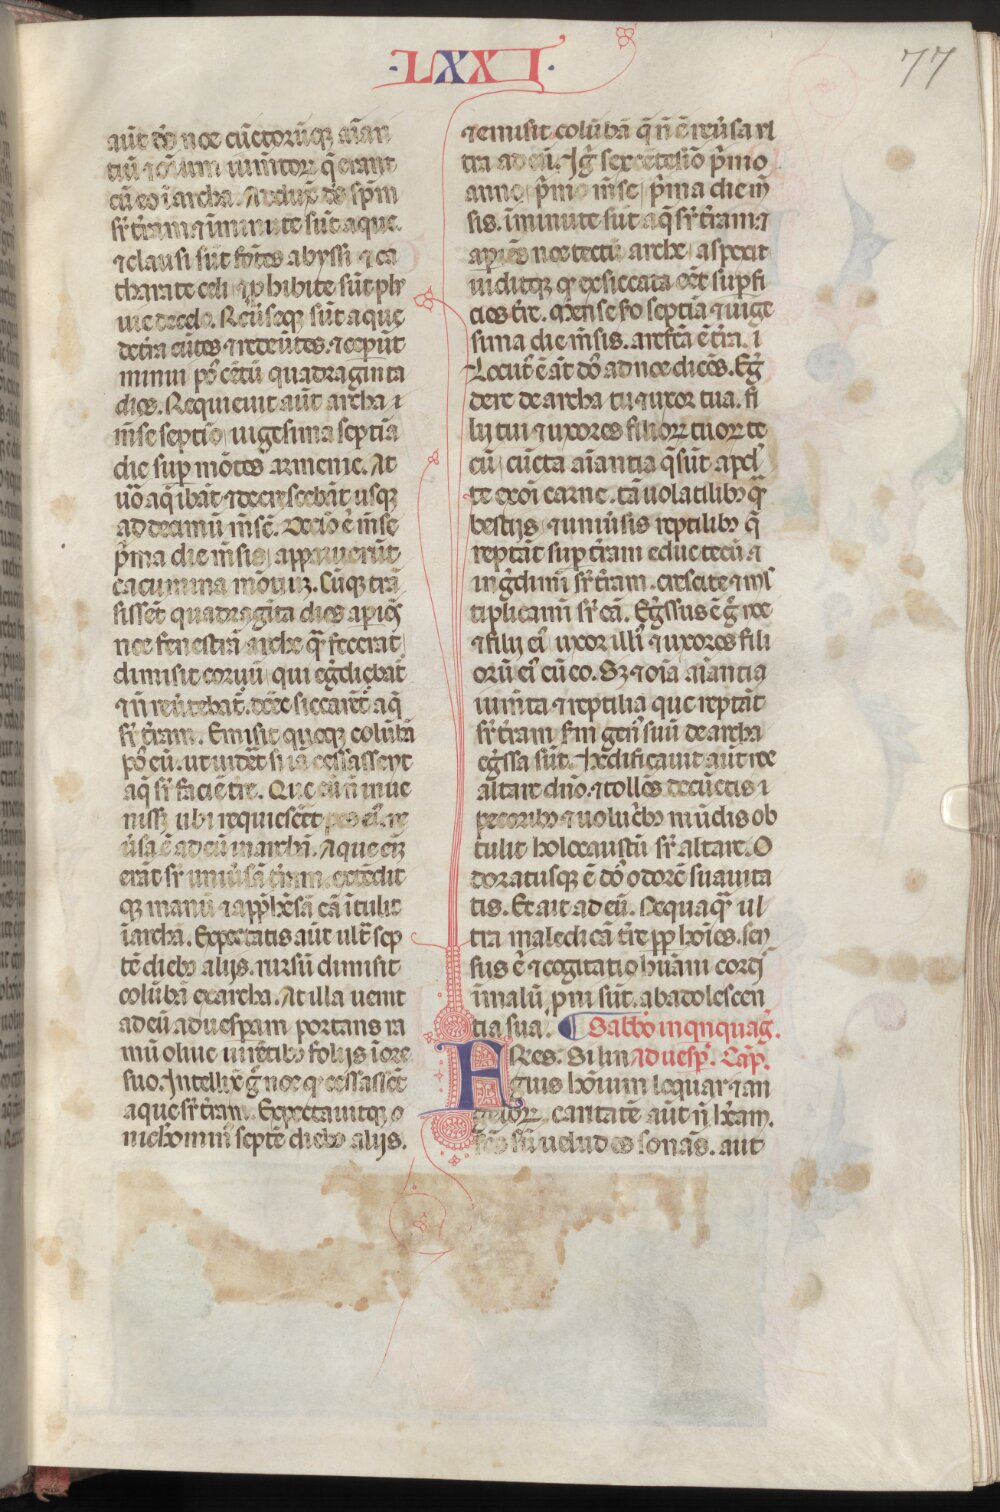 ·LXXI·
77
aūt dō̄s noe cūctorūq̄ aīan
tiū ⁊ oīum iumtor̄ q̄ erant
cū eo ī archa. Addux̄ dō̄s spm̄
sr̄ t̄ram ⁊ īminute sūt aque.
⁊ clausi sūt fōtes abyssi ⁊ ca
tharate celi ⁊ ꝓhibite sūt plv
uie de celo. Reūseq̄ sūt aque
de t̄ra eūtes ⁊ redeūtes. ⁊ cepūt
minui pō cētū quadraginta
dies. Requieuit aūt archa ī
m̄se septīo uigesima septīa
die sup mōtes armenie. At
uō aq̄ ibāt ⁊ decrescebāt usq̄
ad decimū m̄sē. Decīo ē m̄se
p̄ma die m̄sis apparuerūt
cacumina mōtiuz. Cūq̄ trā
sissēt quadragīta dies apiēs
noe fenestrā arche q̄ fecerat
dimisit coruū qui eḡdiebat̄
⁊ ñ reūtebat̄. donec siccarēt̄ aq̄
sr̄ t̄ram. Emisit quoq̄ colūbā
pō eū. ut uidēt si iā cessassent
aq̄ sr̄ faciē t̄re. Que cū ñ inue
nissz ubi requiescēt pes ei᷒. re
ūsa ē ad eū in archā. Aque ēīz
erāt sr̄ uniūsā t̄ram. extēdit
q̄ manū ⁊ apphēsā eā ītulit
ī archā. Expectatis aūt ult̄ sep
tē dieb᷒ alijs. rursū dimisit
colūbā ex archa. At illa uenit
ad eū ad uesp̄am portans ra
mū oliue uirētib᷒ folijs ī ore
suo. Intellix̄ ḡ noe q̄ cessassēt
aque sr̄ t̄ram. Expectauitq̄
nichomin᷒ septē dieb᷒ alijs.
⁊ emisit colūbā q̄ ñ ē reūsa vl
tra ad eū. Iḡ sexcētesīo p̄mo
anno p̄mo m̄se p̄ma die m̄
sis. īminute sūt aq̄ sr̄ t̄ram. ⁊
apiēs noe tectū arche aspexit
uiditq̄ q̄ exsiccata eēt supfi
cies t̄re. Mense s̄o septīa ⁊ uige
sima die m̄sis. arefcā ē t̄ra. ⁊
Locut᷒ ē āt dō̄s ad noe dicēs. Eḡ
dere de archa tu ⁊ uxor tua. fi
lij tui ⁊ uxores filior̄ tuor̄ te
cū. cūcta aīantia q̄ sūt apd̄
te ex oī carne. tā uolatilib᷒ q̄
bestijs ⁊ uniūsis reptilib᷒ q̄
reptāt sup t̄ram educ tecū ⁊
ingdimī sr̄ t̄ram. crescite ⁊ ml᷒
tiplicamī sr̄ eā. Eḡssus ē ḡ noe
⁊ filij ei᷒ uxor illi᷒ ⁊ uxores fili
orū ei᷒ cū eo. Sz ⁊ oīa aīantia
iumta ⁊ reptilia que reptāt
sr̄ t̄ram s̄m gen᷒ suū de archa
eḡssa sūt. Hedificauit aūt noe
altare dn̄o. ⁊ tollēs de cūctis ⁊
pecorib᷒ ⁊ uolucb᷒ mūdis ob
tulit holocaustū sr̄ altare. O
doratusq̄ ē dō̄s odorē suauita
tis. Et ait ad eū. Nequaq̄ ul
tra maledicā t̄re pp hoīes. sen
sus ē ⁊ cogitatio huāni cordis
ī malū pni sūt. ab adolescen
tia sua. Sabb᷒o in qnquaḡ.
Fres. Si lin ad uesp̄. Cap̄.
guis hoīum loquar ⁊ an
gelor̄. caritatē aūt ñ hēam.
fcūs sū uelud es sonās. aut